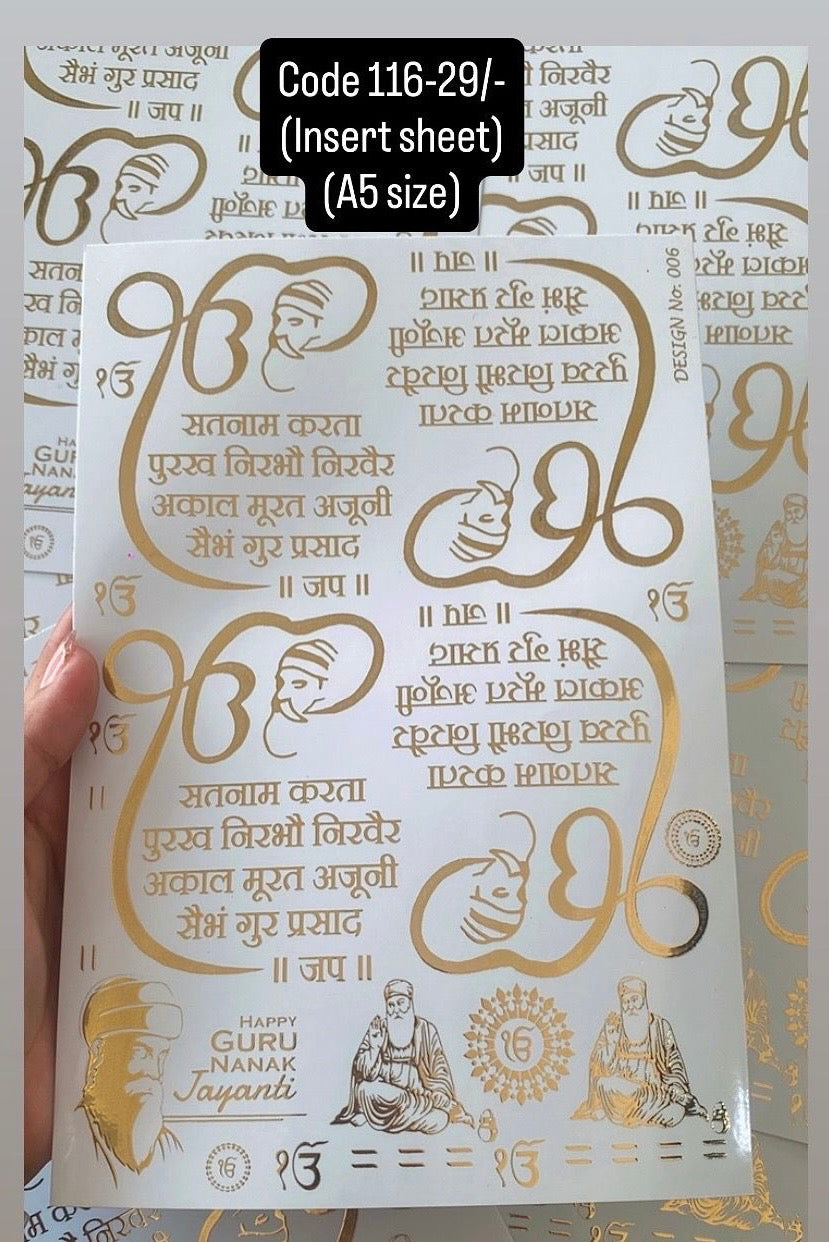 Code 116-29/-
(Insert sheet)
(A5 size)
अकाल मूरत अजूनी
सैभं गुर प्रसाद
॥ जप ॥
निरवैर
अजूनी
॥ जप ॥
DESIGN No. 006
ੴ
सतनाम करता
पुरख निरभौ निरवैर
अकाल मूरत अजूनी
सैभं गुर प्रसाद
॥ जप ॥
॥ जप ॥
सैभं गुर प्रसाद
अकाल मूरत अजूनी
पुरख निरभौ निरवैर
सतनाम करता
ੴ
ੴ
ੴ
सतनाम करता
पुरख निरभौ निरवैर
अकाल मूरत अजूनी
सैभं गुर प्रसाद
॥ जप ॥
॥ जप ॥
सैभं गुर प्रसाद
अकाल मूरत अजूनी
पुरख निरभौ निरवैर
सतनाम करता
ੴ
HAPPY
GURU
NANAK
Jayanti
ੴ
ੴ
ੴ
ੴ